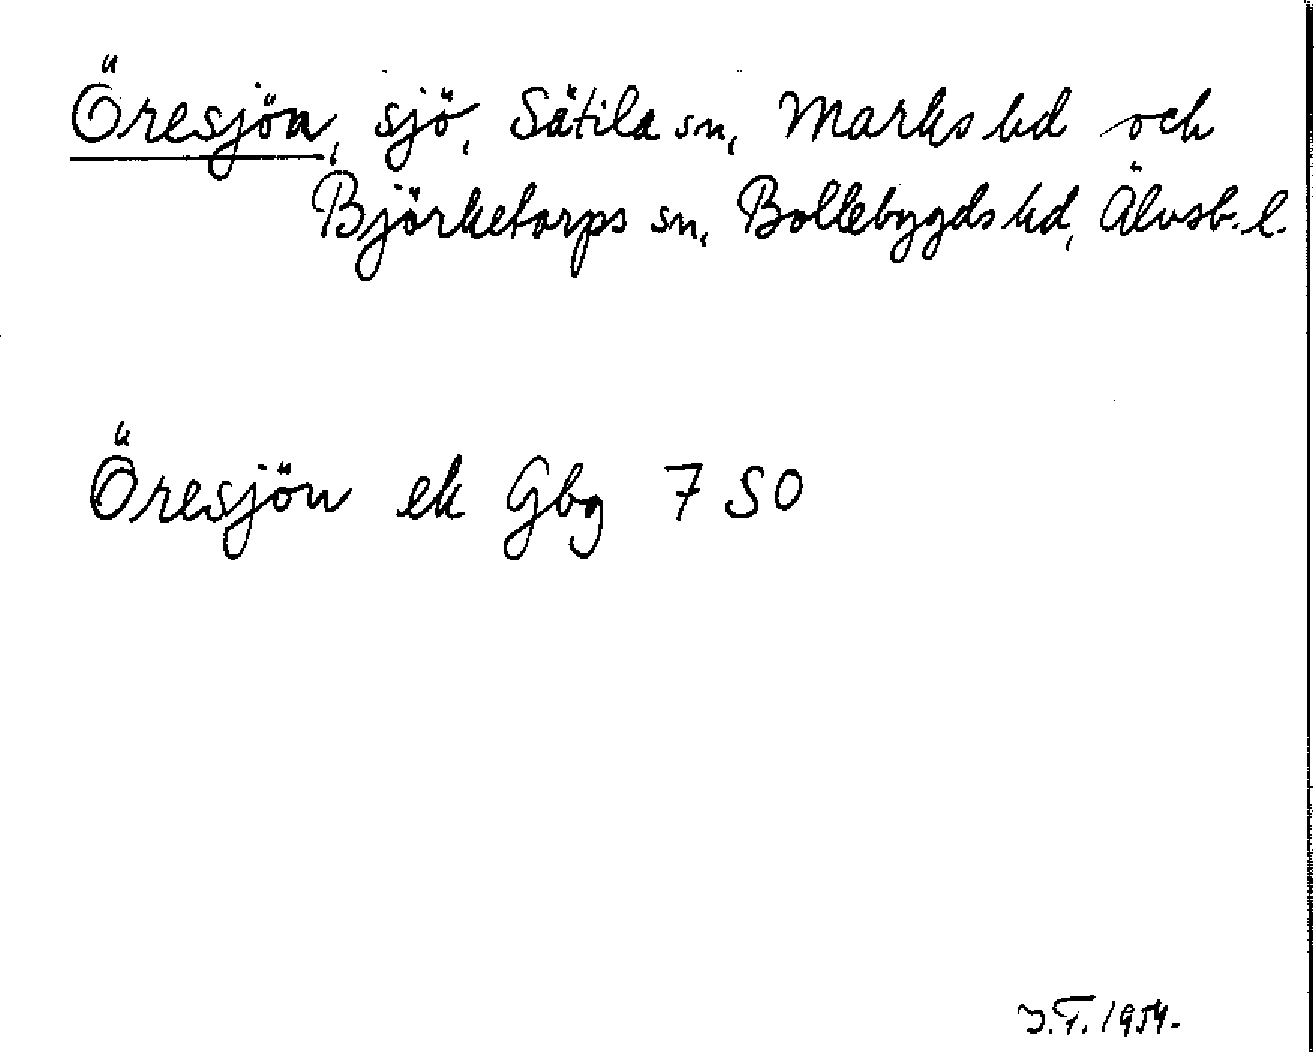 Öresjön, sjö, Sätila sn, Marks hd och
Björketorps sn, Bollebygds hd, Älvsb. l.
Öresjön ek Gbg 7 SO
J.F. 1954.